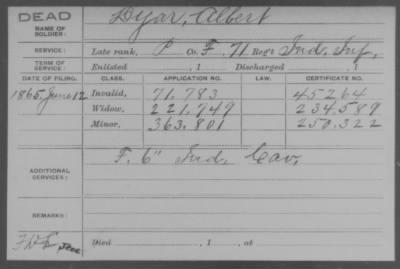 DEAD
NAME OF SOLDIER: Dyar, Albert
SERVICE: Late rank, P Co. F, 71 Reg't Ind. Inf,
TERM OF SERVICE: Enlisted , 1 Discharged , 1
DATE OF FILING. CLASS. APPLICATION NO. LAW. CERTIFICATE NO.
1865, June 12 Invalid, 71.783 45264
Widow, 221,949 234.589
Minor, 363.801 250.322
ADDITIONAL SERVICES: F. 6" Ind. Cav.
REMARKS:
Died , 1 , at